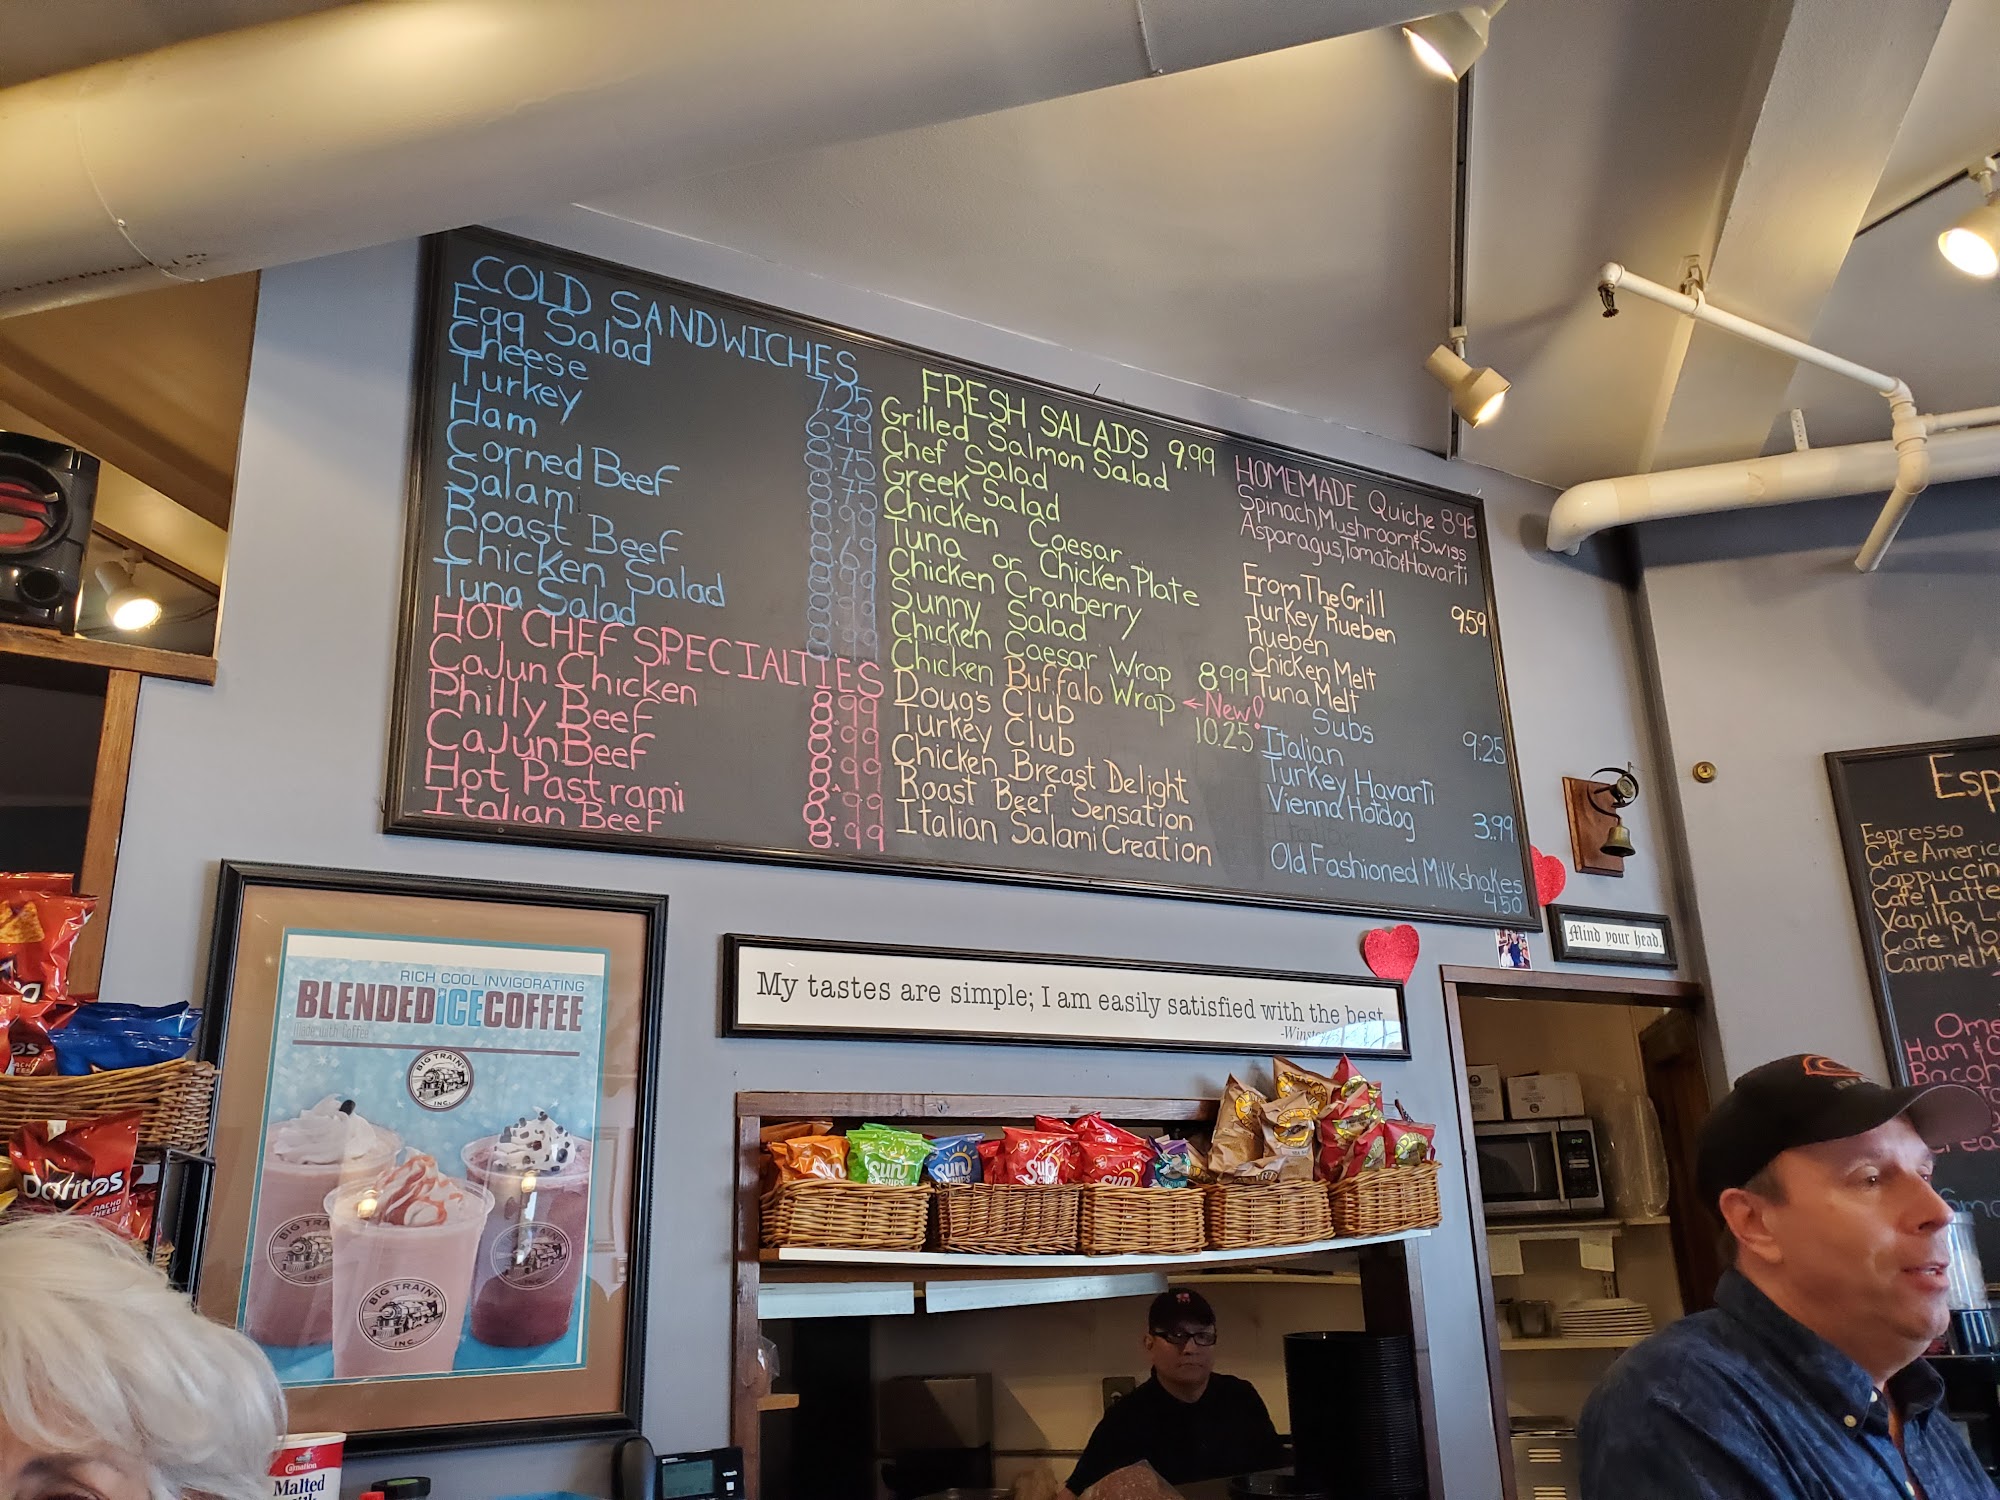 COLD SANDWICHES
Egg Salad 7.25
Cheese 6.49
Turkey 8.75
Ham 8.75
Corned Beef 8.99
Salami 8.69
Roast Beef 8.99
Chicken Salad 8.99
Tuna Salad 8.99
HOT CHEF SPECIALTIES
Cajun Chicken 8.99
Philly Beef 8.99
Cajun Beef 8.99
Hot Pastrami 8.99
Italian Beef 8.99
FRESH SALADS 9.99
Grilled Salmon Salad
Chef Salad
Greek Salad
Chicken Caesar
Tuna or Chicken Plate
Chicken Cranberry
Sunny Salad
Chicken Caesar Wrap 8.99
Chicken Buffalo Wrap ←New!
Doug's Club 10.25
Turkey Club
Chicken Breast Delight
Roast Beef Sensation
Italian Salami Creation
HOMEMADE Quiche 8.95
Spinach, Mushroom & Swiss
Asparagus, Tomato & Havarti
From The Grill 9.59
Turkey Rueben
Rueben
Chicken Melt
Tuna Melt
Subs
Italian 9.25
Turkey Havarti
Vienna Hotdog 3.99
Old Fashioned Milkshakes
4.50
Mind your head.
My tastes are simple; I am easily satisfied with the best.
RICH COOL INVIGORATING
BLENDEDiCECOFFEE
made with Coffee
BIG TRAIN
INC.
BIG TRAIN
INC.
Espresso
Cappuccin
Cafe Latte
Vanilla
Doritos
NACHO
CHEESE
Sun
CHIPS
Sun
CHIPS
Sun
Sun
Carnation
Malted